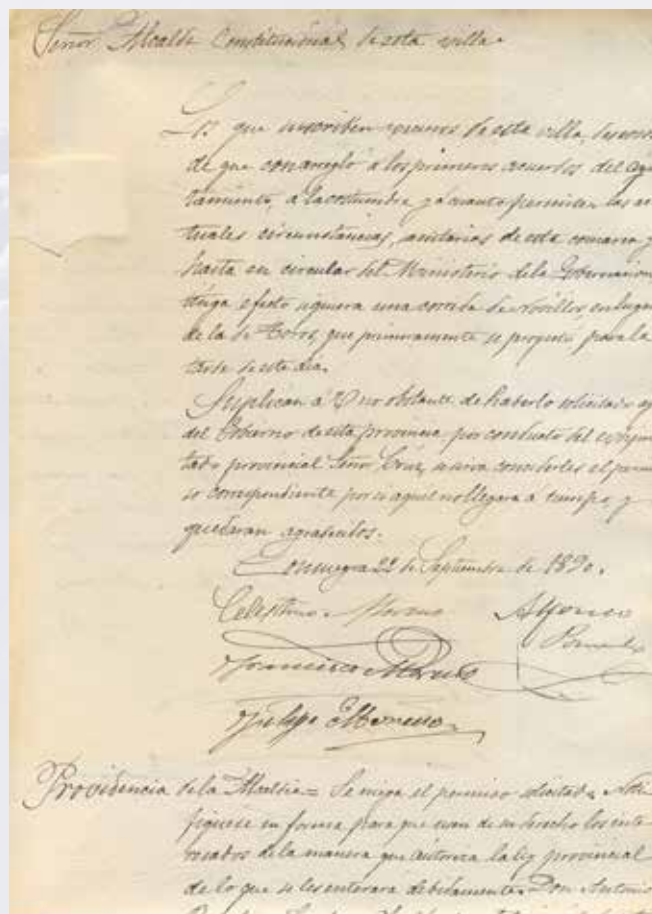 Señor Alcalde Constitucional de esta villa.
Los que suscriben vecinos de esta villa, deseosos
de que con arreglo a los primeros acuerdos del Ayun
tamiento, a la costumbre y á cuanto permiten las ac
tuales circunstancias, sanitarias de esta comarca y
hasta en circular del Ministerio de la Gobernacion
tenga efecto siquiera una corrida de Novillos, en lugar
de la de Toros, que primeramente se proyectó, para la
tarde de este dia.
Suplican á V no obstante de haberlo solicitado
del Gobierno de esta provincia por conducto del
tado provincial Señor Cruz, se sirva concederles el permi
so correspondiente por si aquel no llegara a tiempo, y
quedaran agradecidos.
Consuegra 22 de Septiembre de 1890.
Celestino Moreno Alfonso
Francisco Moreno
Felipe Moreno
Providencia de la Alcaldia= Se niega el permiso solicitado. Noti
fiquese en forma para que usen de su derecho los inte
resados de la manera que autoriza la ley provincial
de lo que se les enterará debidamente. Don Antonio